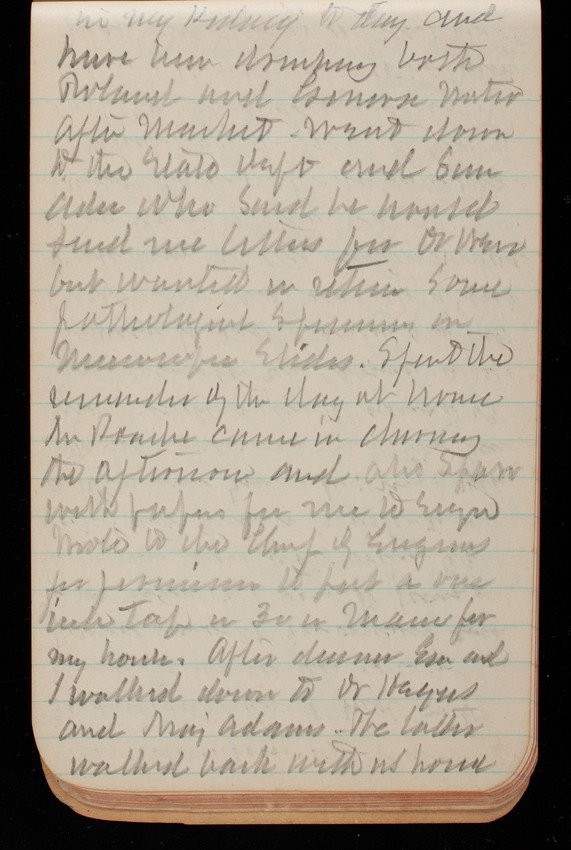 in my Kidney to day and
have been dumping both
Roland and Genova Water
after Market. Went down
to the State Dept and saw
Adee who said he would
send me letters for Dr
but wanted in return Some
pathological Specimens on
Microscopic Slides. Spent the
remainder of the day at home
Mr Roache came in during
the afternoon and also Sparr
with papers for me to sign
Wrote to the Chief of Engineers
for permission to put a one
inch Tap in 30 in Main for
my house. After dinner Esa and
I walked down to Dr Heyes
and Maj Adams. The latter
walked back with us home